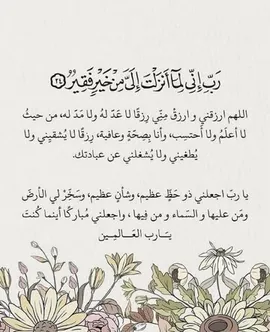 رَبِّ إِنِّي لِمَا أَنزَلْتَ إِلَيَّ مِنْ خَيْرٍ فَقِيرٌ ۝٢٤
اللهم ارزقني و ارزقْ مِنّي رِزقًا لا عَدّ لهُ ولا مَدّ له، من حيثُ
لا أعلَمُ ولا أحتسِب، وأنا بِصحّةٍ وعافية، رِزقًا لا يُشقيني ولا
يُطغيني ولا يُشغلني عن عبادتك.
يا ربّ اجعلني ذو حَظٍّ عظيم، وشأنٍ عظيم، وسَخِّرْ لي الأرضَ
ومَن عليها و السَّماء و من فِيها ، واجعلني مُباركًا أينما كُنتَ
يَـارب العَـالمـين